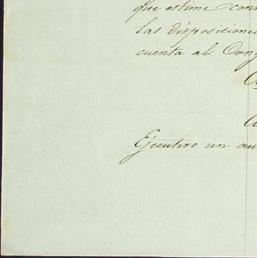 que estime con
las disposiciones
cuenta al Cong
Ejecutivo un au